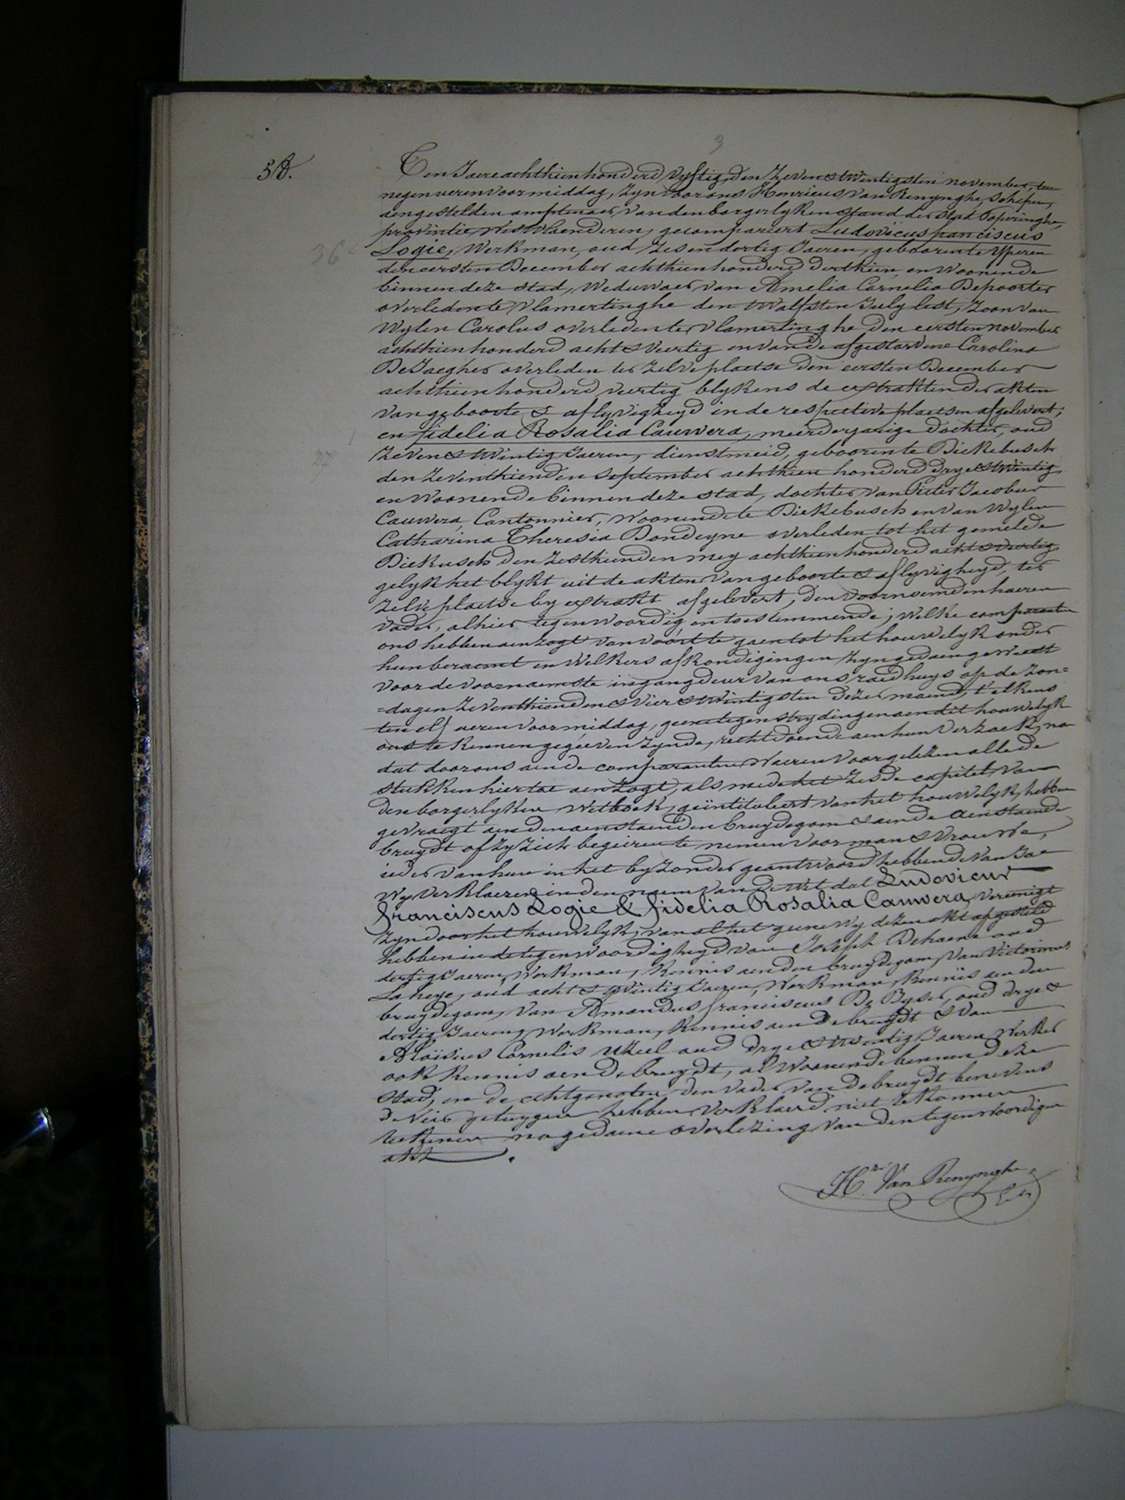 3
58.
Ten Jaere achthien honderd vyftig, den Zeven & twintigsten november, ten
negen ueren voormiddag, zyn voor ons Henricus Van Renynghe, Schepen,
aengestelden amptenaer van den borgerlyken staed der stad Poperinghe,
provintie Westvlaenderen, gecompareert Ludovicus franciscus
36 Logie, Werkman, oud zes en dertig Jaeren, geboren te Yperen
den eersten December achthien honderd derthien, en Woonende
binnen deze stad, Weduwaer van Amelia Cornelia Depoorter
overleden te Vlamertinghe den twalfsten July lest, zoon van
Wylen Carolus overleden ter Vlamertinghe, den eersten november
achthien honderd acht & veertig en van de afgestorvene Carolina
DeJaegher overleden ter zelve plaetse den eersten December
achthien honderd veertig blykens de extrakten der akten
van geboorte & aflyvigheyd in de respective plaetsen afgelevert;
en fidelia Rosalia Cauwera, meerderjarige dochter, oud
27 Zeven & twintig Jaeren, dienstmeid, geboren te Dickebusch
den zeventhienden september achthien honderd drye & twintig
en Woonende binnen deze stad, dochter van Pieter Jacobus
Cauwera, Cantonnier, Woonende te Dickebusch en van Wylen
Catharina Theresia Dondeyne overleden tot het gemelde
Dickusch den zesthienden mey achthien honderd acht & veertig
gelyk het blykt uit de akten van geboorte & aflyvigheyd, ter
zelve plaetse by extrakt afgelevert, den voornoemden haeren
vader, alhier tegenwoordig en toestemmende; welke comparanten
ons hebben aenzogt van voort te gaen tot het houwelyk onder
hun beraemt en welkers afkondigingen zyn gedaen geweest
voor de voornaemste ingangdeur van ons raedhuys op de zon=
=dagen zeventhienden & vier & twintigsten dezer maend, t'elkens
ten elf ueren voormiddag, geene tegenstrydingen aen dit houwelyk
ons te kennen gegeven zynde, rechtdoende aen hun verzoek, na
dat door ons aen de comparanten waeren voorgelezen alle de
stukken hier toe aenzogt, als mede het zesde capitel van
den borgerlyken Wetboek, geïntituleert van het houwelyk, hebben
gevraegt aen den aenstaenden bruydegom & aen de aenstaende
bruydt of zy zich begeeren te nemen voor man & vrouwe,
ieder van hun in het byzonder geantwoord hebbende van Ja
Wy verklaeren in den naem van de wet dat Ludovicus
franciscus Logie & fidelia Rosalia Cauwera, Vereenigt
zyn door het houwelyk; van al het geene wy dezen akt opgesteld
hebben in de tegenwoordigheyd van Joseph Dehaene oud
dertig Jaeren, Werkman, Kennis aen den bruydegom, Van Victorinus
Laheye, oud acht & twintig Jaeren, Werkman, Kennis aen den
bruydegom, Van Amandus franciscus De Byser, oud drye &
dertig Jaeren, Werkman, Kennis aen de bruydt & Van
Aloïsius Cornelis Uzeel oud drye & twintig Jaeren, Werker
ook Kennis aen de bruydt, al Woonende binnen deze
stad, en de echtgenoten, den vader van de bruydt benevens
de vier getuygen hebben verklaerd niet te konnen
teekenen na gedaene overlezing van den tegenwoordigen
akt.
Hri. Van Renynghe